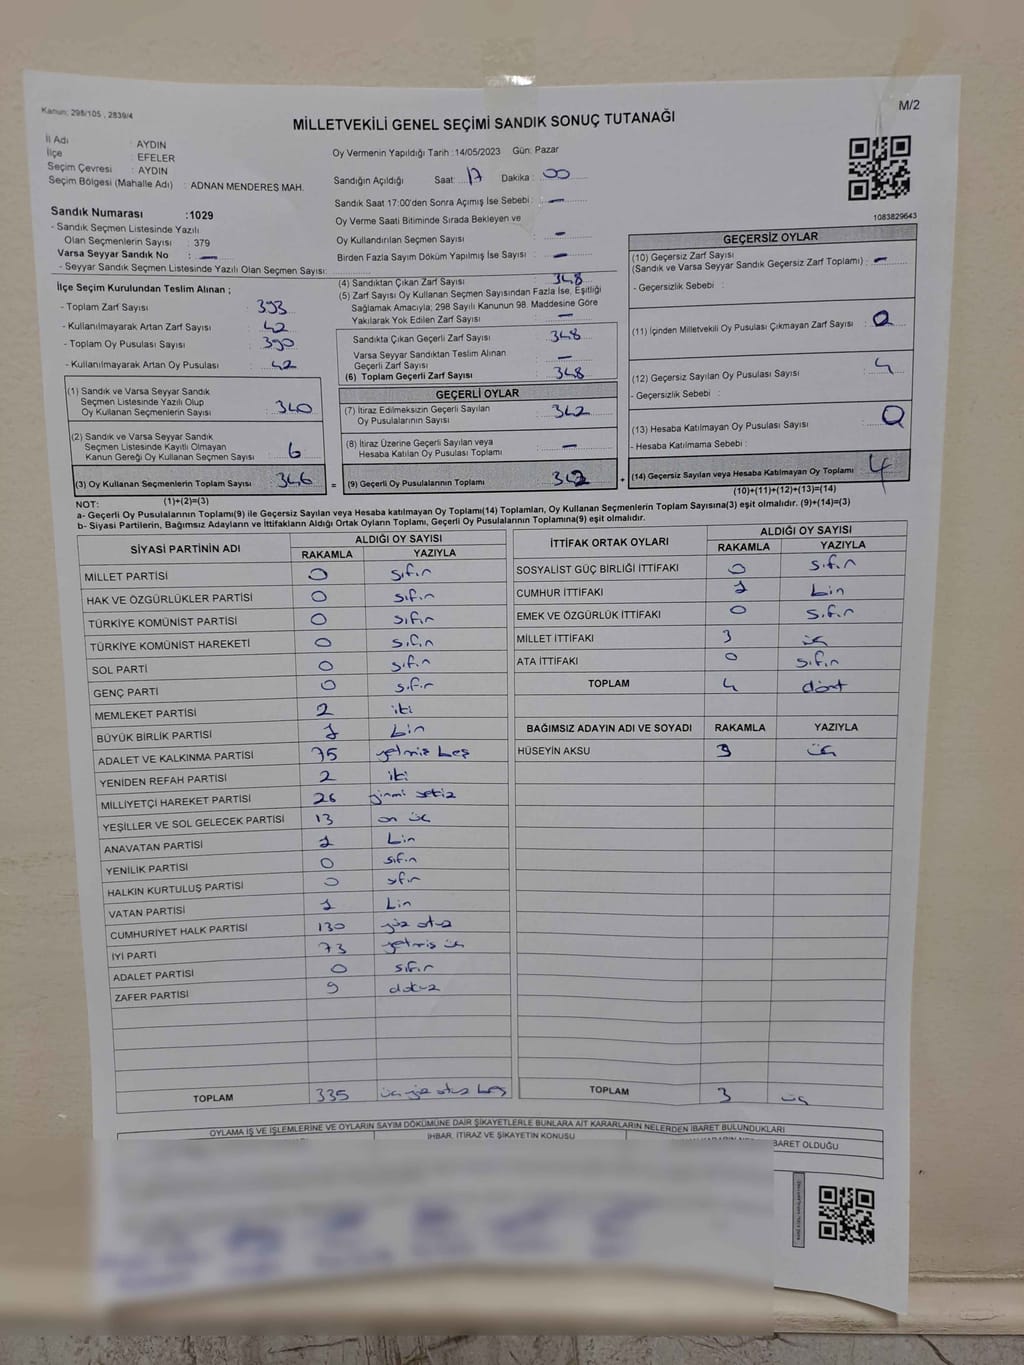 Kanun: 298/105 , 2839/4
M/2
MİLLETVEKİLİ GENEL SEÇİMİ SANDIK SONUÇ TUTANAĞI
İl Adı : AYDIN
İlçe : EFELER
Seçim Çevresi : AYDIN
Seçim Bölgesi (Mahalle Adı) : ADNAN MENDERES MAH.
Sandık Numarası :1029
- Sandık Seçmen Listesinde Yazılı
Olan Seçmenlerin Sayısı : 379
Varsa Seyyar Sandık No : —
- Seyyar Sandık Seçmen Listesinde Yazılı Olan Seçmen Sayısı:
Oy Vermenin Yapıldığı Tarih :14/05/2023 Gün: Pazar
Sandığın Açıldığı Saat: 17 Dakika : 00
Sandık Saat 17:00'den Sonra Açımış İse Sebebi : —
Oy Verme Saati Bitiminde Sırada Bekleyen ve
Oy Kullandırılan Seçmen Sayısı : —
Birden Fazla Sayım Döküm Yapılmış İse Sayısı : —
1083829643
İlçe Seçim Kurulundan Teslim Alınan ;
- Toplam Zarf Sayısı : 393
- Kullanılmayarak Artan Zarf Sayısı : 42
- Toplam Oy Pusulası Sayısı : 390
- Kullanılmayarak Artan Oy Pusulası : 42
(1) Sandık ve Varsa Seyyar Sandık
Seçmen Listesinde Yazılı Olup
Oy Kullanan Seçmenlerin Sayısı : 340
(2) Sandık ve Varsa Seyyar Sandık
Seçmen Listesinde Kayıtlı Olmayan
Kanun Gereği Oy Kullanan Seçmen Sayısı : 6
(3) Oy Kullanan Seçmenlerin Toplam Sayısı : 346
(1)+(2)=(3)
(4) Sandıktan Çıkan Zarf Sayısı : 348
(5) Zarf Sayısı Oy Kullanan Seçmen Sayısından Fazla İse, Eşitliği
Sağlamak Amacıyla; 298 Sayılı Kanunun 98. Maddesine Göre
Yakılarak Yok Edilen Zarf Sayısı : —
Sandıkta Çıkan Geçerli Zarf Sayısı : 348
Varsa Seyyar Sandıktan Teslim Alınan
Geçerli Zarf Sayısı : —
(6) Toplam Geçerli Zarf Sayısı : 348
GEÇERLİ OYLAR
(7) İtiraz Edilmeksizin Geçerli Sayılan
Oy Pusulalarının Sayısı : 342
(8) İtiraz Üzerine Geçerli Sayılan veya
Hesaba Katılan Oy Pusulası Toplamı : —
= (9) Geçerli Oy Pusulalarının Toplamı : 342
GEÇERSİZ OYLAR
(10) Geçersiz Zarf Sayısı
(Sandık ve Varsa Seyyar Sandık Geçersiz Zarf Toplamı) : —
- Geçersizlik Sebebi :
(11) İçinden Milletvekili Oy Pusulası Çıkmayan Zarf Sayısı : 0
(12) Geçersiz Sayılan Oy Pusulası Sayısı : 4
- Geçersizlik Sebebi :
(13) Hesaba Katılmayan Oy Pusulası Sayısı : 0
- Hesaba Katılmama Sebebi :
+ (14) Geçersiz Sayılan veya Hesaba Katılmayan Oy Toplamı : 4
(10)+(11)+(12)+(13)=(14)
NOT:
a- Geçerli Oy Pusulalarının Toplamı(9) ile Geçersiz Sayılan veya Hesaba katılmayan Oy Toplamı(14) Toplamları, Oy Kullanan Seçmenlerin Toplam Sayısına(3) eşit olmalıdır. (9)+(14)=(3)
b- Siyasi Partilerin, Bağımsız Adayların ve İttifakların Aldığı Ortak Oyların Toplamı, Geçerli Oy Pusulalarının Toplamına(9) eşit olmalıdır.
SİYASİ PARTİNİN ADI ALDIĞI OY SAYISI
RAKAMLA YAZIYLA
MİLLET PARTİSİ 0 sıfır
HAK VE ÖZGÜRLÜKLER PARTİSİ 0 sıfır
TÜRKİYE KOMÜNİST PARTİSİ 0 sıfır
TÜRKİYE KOMÜNİST HAREKETİ 0 sıfır
SOL PARTİ 0 sıfır
GENÇ PARTİ 0 sıfır
MEMLEKET PARTİSİ 2 iki
BÜYÜK BİRLİK PARTİSİ 1 bir
ADALET VE KALKINMA PARTİSİ 75 yetmiş beş
YENİDEN REFAH PARTİSİ 2 iki
MİLLİYETÇİ HAREKET PARTİSİ 28 yirmi sekiz
YEŞİLLER VE SOL GELECEK PARTİSİ 13 on üç
ANAVATAN PARTİSİ 1 bir
YENİLİK PARTİSİ 0 sıfır
HALKIN KURTULUŞ PARTİSİ 0 sıfır
VATAN PARTİSİ 1 bir
CUMHURİYET HALK PARTİSİ 130 yüz otuz
İYİ PARTİ 73 yetmiş üç
ADALET PARTİSİ 0 sıfır
ZAFER PARTİSİ 9 dokuz
TOPLAM 335 üçyüz otuz beş
İTTİFAK ORTAK OYLARI ALDIĞI OY SAYISI
RAKAMLA YAZIYLA
SOSYALİST GÜÇ BİRLİĞİ İTTİFAKI 0 sıfır
CUMHUR İTTİFAKI 1 bir
EMEK VE ÖZGÜRLÜK İTTİFAKI 0 sıfır
MİLLET İTTİFAKI 3 üç
ATA İTTİFAKI 0 sıfır
TOPLAM 4 dört
BAĞIMSIZ ADAYIN ADI VE SOYADI RAKAMLA YAZIYLA
HÜSEYİN AKSU 3 üç
TOPLAM 3 üç
OYLAMA İŞ VE İŞLEMLERİNE VE OYLARIN SAYIM DÖKÜMÜNE DAİR ŞİKAYETLERLE BUNLARA AİT KARARLARIN NELERDEN İBARET BULUNDUKLARI
İHBAR, İTİRAZ VE ŞİKAYETİN KONUSU
İBARET OLDUĞU